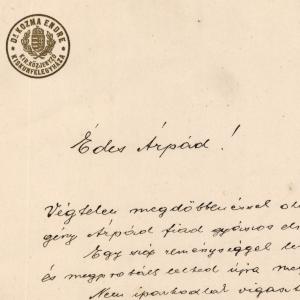 Dr. KOZMA ENDRE
KIR. KÖZJEGYZŐ
KISKUNFÉLEGYHÁZA
Édes Árpád!
Végtelen megdöbbenéssel ol
gény Árpád fiad gyászos el
Egy szép reménységgel te
és megpróbált lelked újra me
Nem iparkodok vigaszt